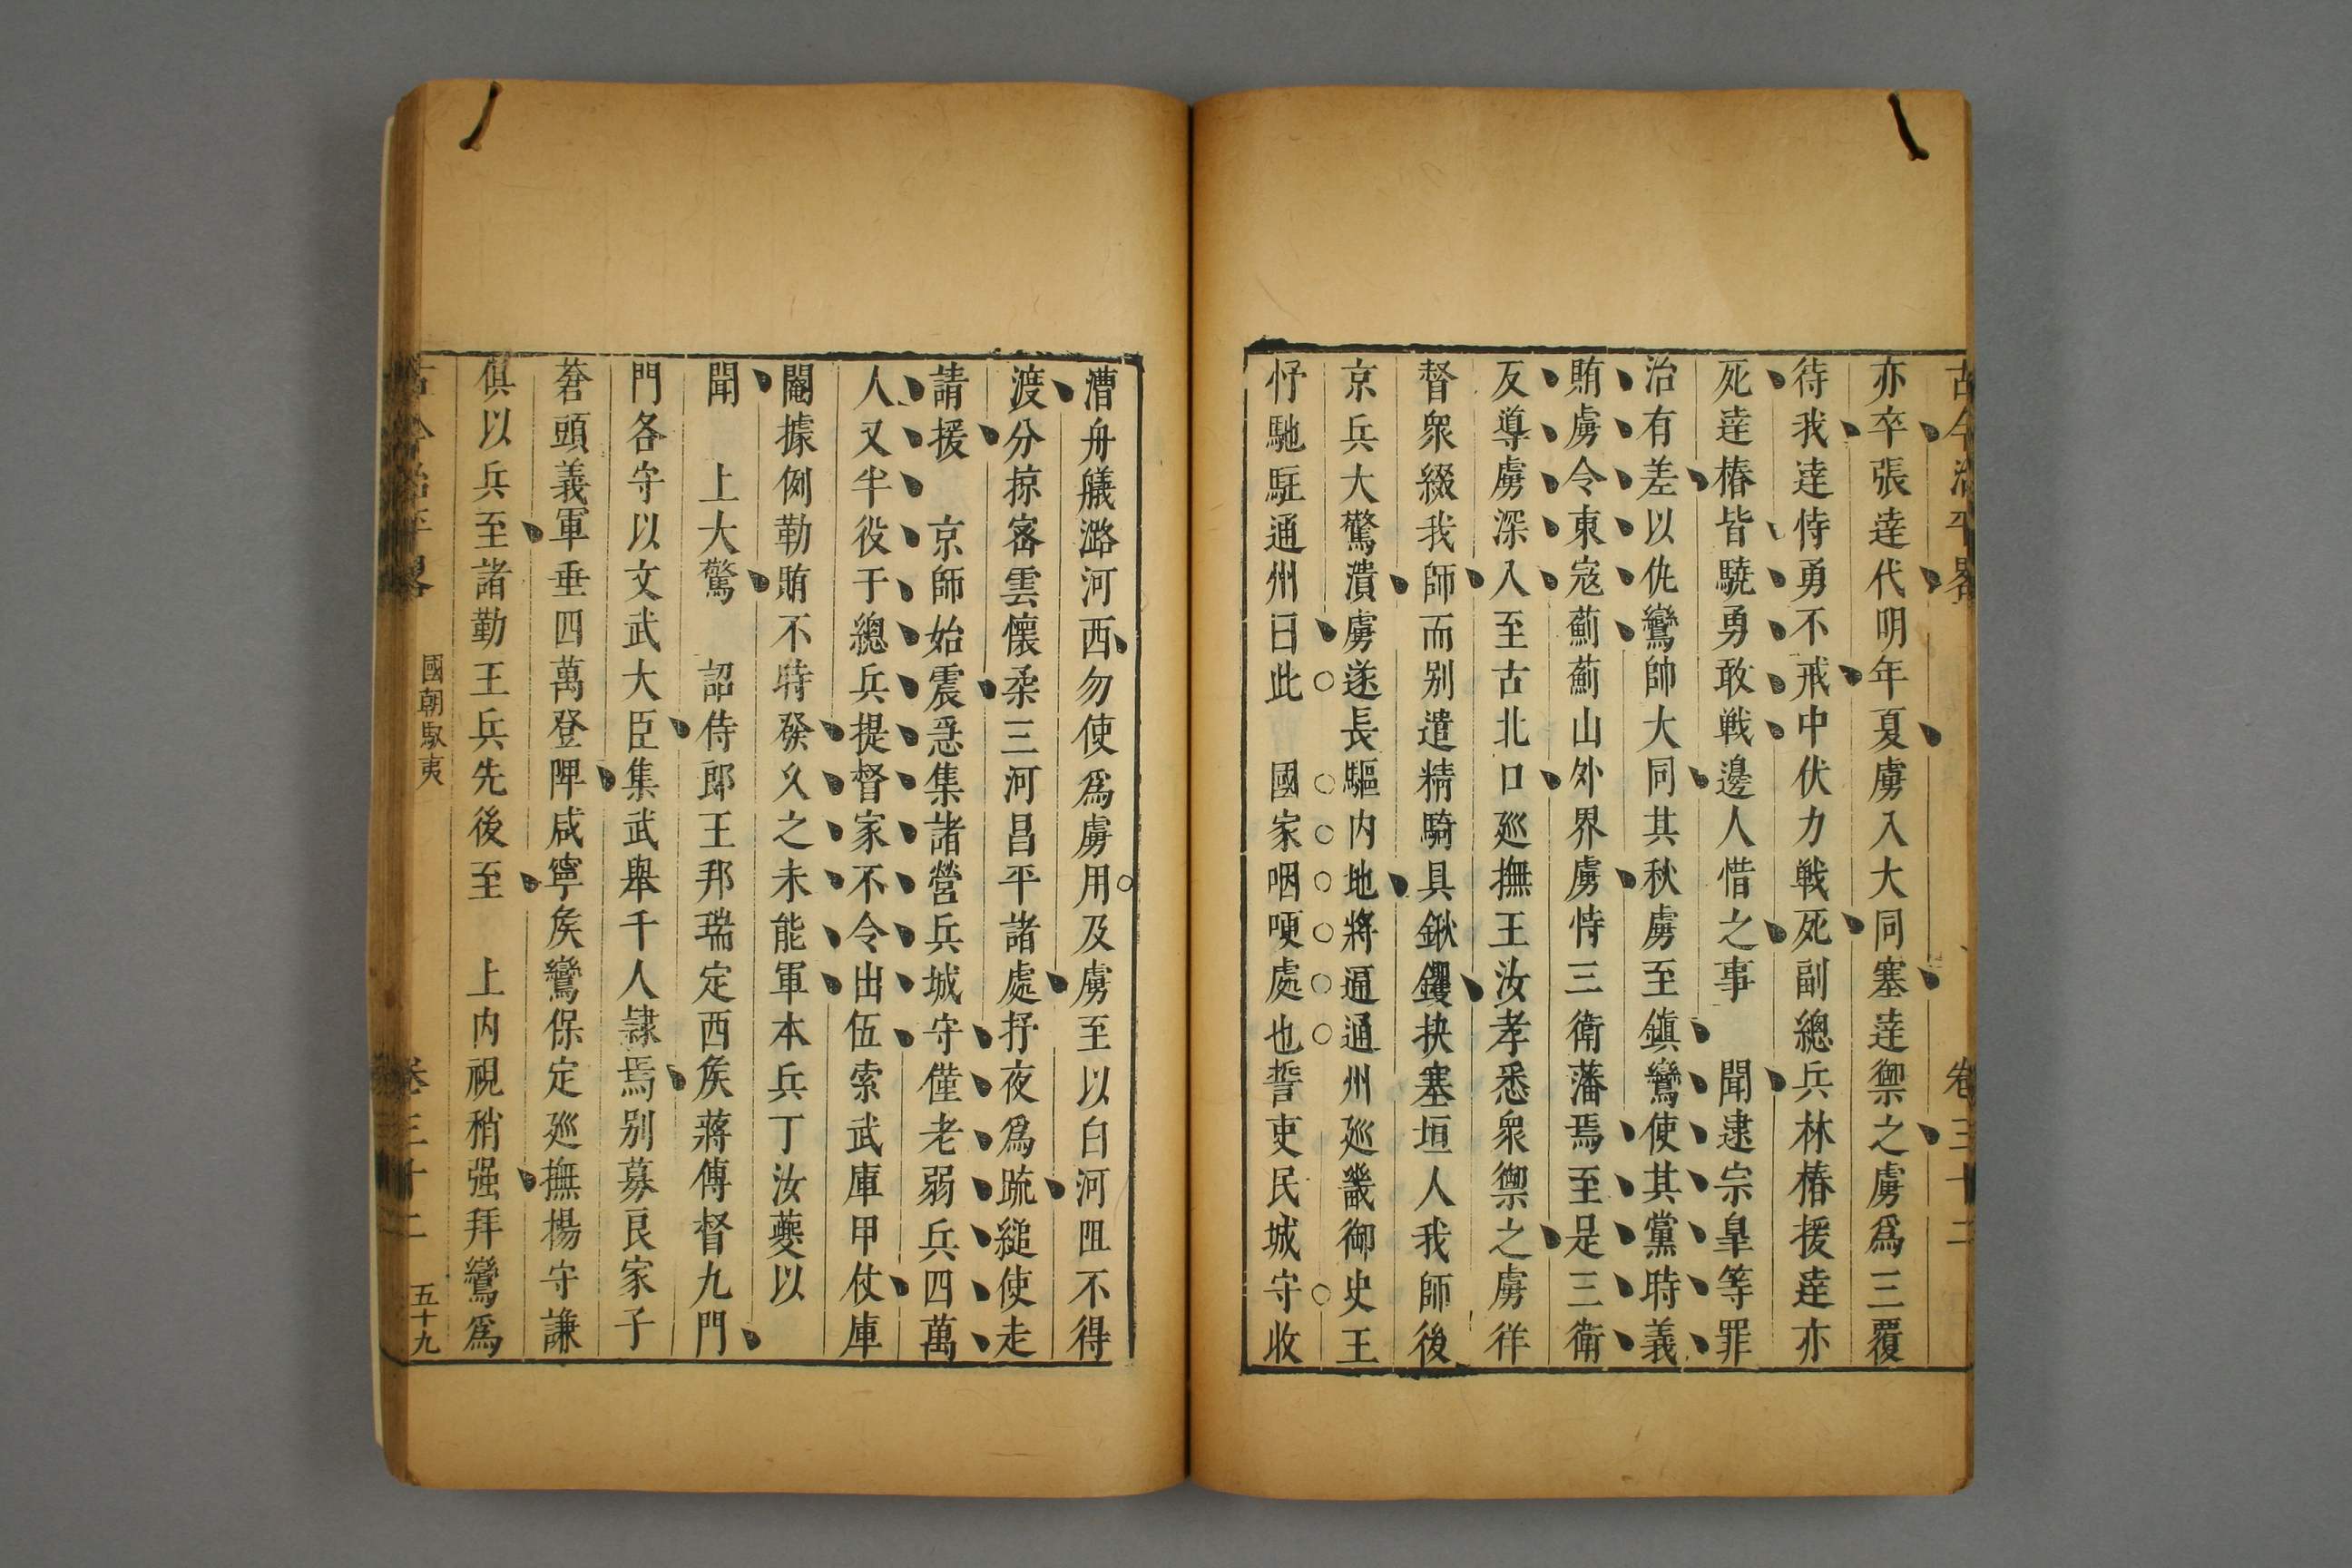 古今治平畧 卷三十二
亦卒張達代明年夏虜入大同塞達禦之虜爲三覆
待我達恃勇不戒中伏力戰死副總兵林椿援達亦
死達椿皆驍勇敢戰邊人惜之事 聞逮宗臯等罪
治有差以仇鸞帥大同其秋虜至鎮鸞使其黨時義
賄虜令東寇薊薊山外界虜恃三衛藩焉至是三衛
反導虜深入至古北口廵撫王汝孝悉衆禦之虜徉
督衆綴我師而别遣精騎具鍬钁抉塞垣人我師後
京兵大驚潰虜遂長驅内地將逼通州廵畿御史王
忬馳駐通州曰此 國家咽哽處也誓吏民城守收
漕舟艤潞河西勿使爲虜用及虜至以白河阻不得
渡分掠宻雲懷柔三河昌平諸處抒夜爲䟽縋使走
請援 京師始震恐集諸營兵城守僅老弱兵四萬
人又半役于總兵提督家不令出伍索武庫甲仗庫
閹據例勒賄不時發久之未能軍本兵丁汝夔以
聞 上大驚 詔侍郎王邦瑞定西侯蔣傳督九門
門各守以文武大臣集武舉千人隷焉别募良家子
蒼頭義軍垂四萬登陴咸寧侯鸞保定廵撫楊守謙
俱以兵至諸勤王兵先後至 上内視稍强拜鸞爲
古今治平畧 國朝馭夷 卷三十二 五十九